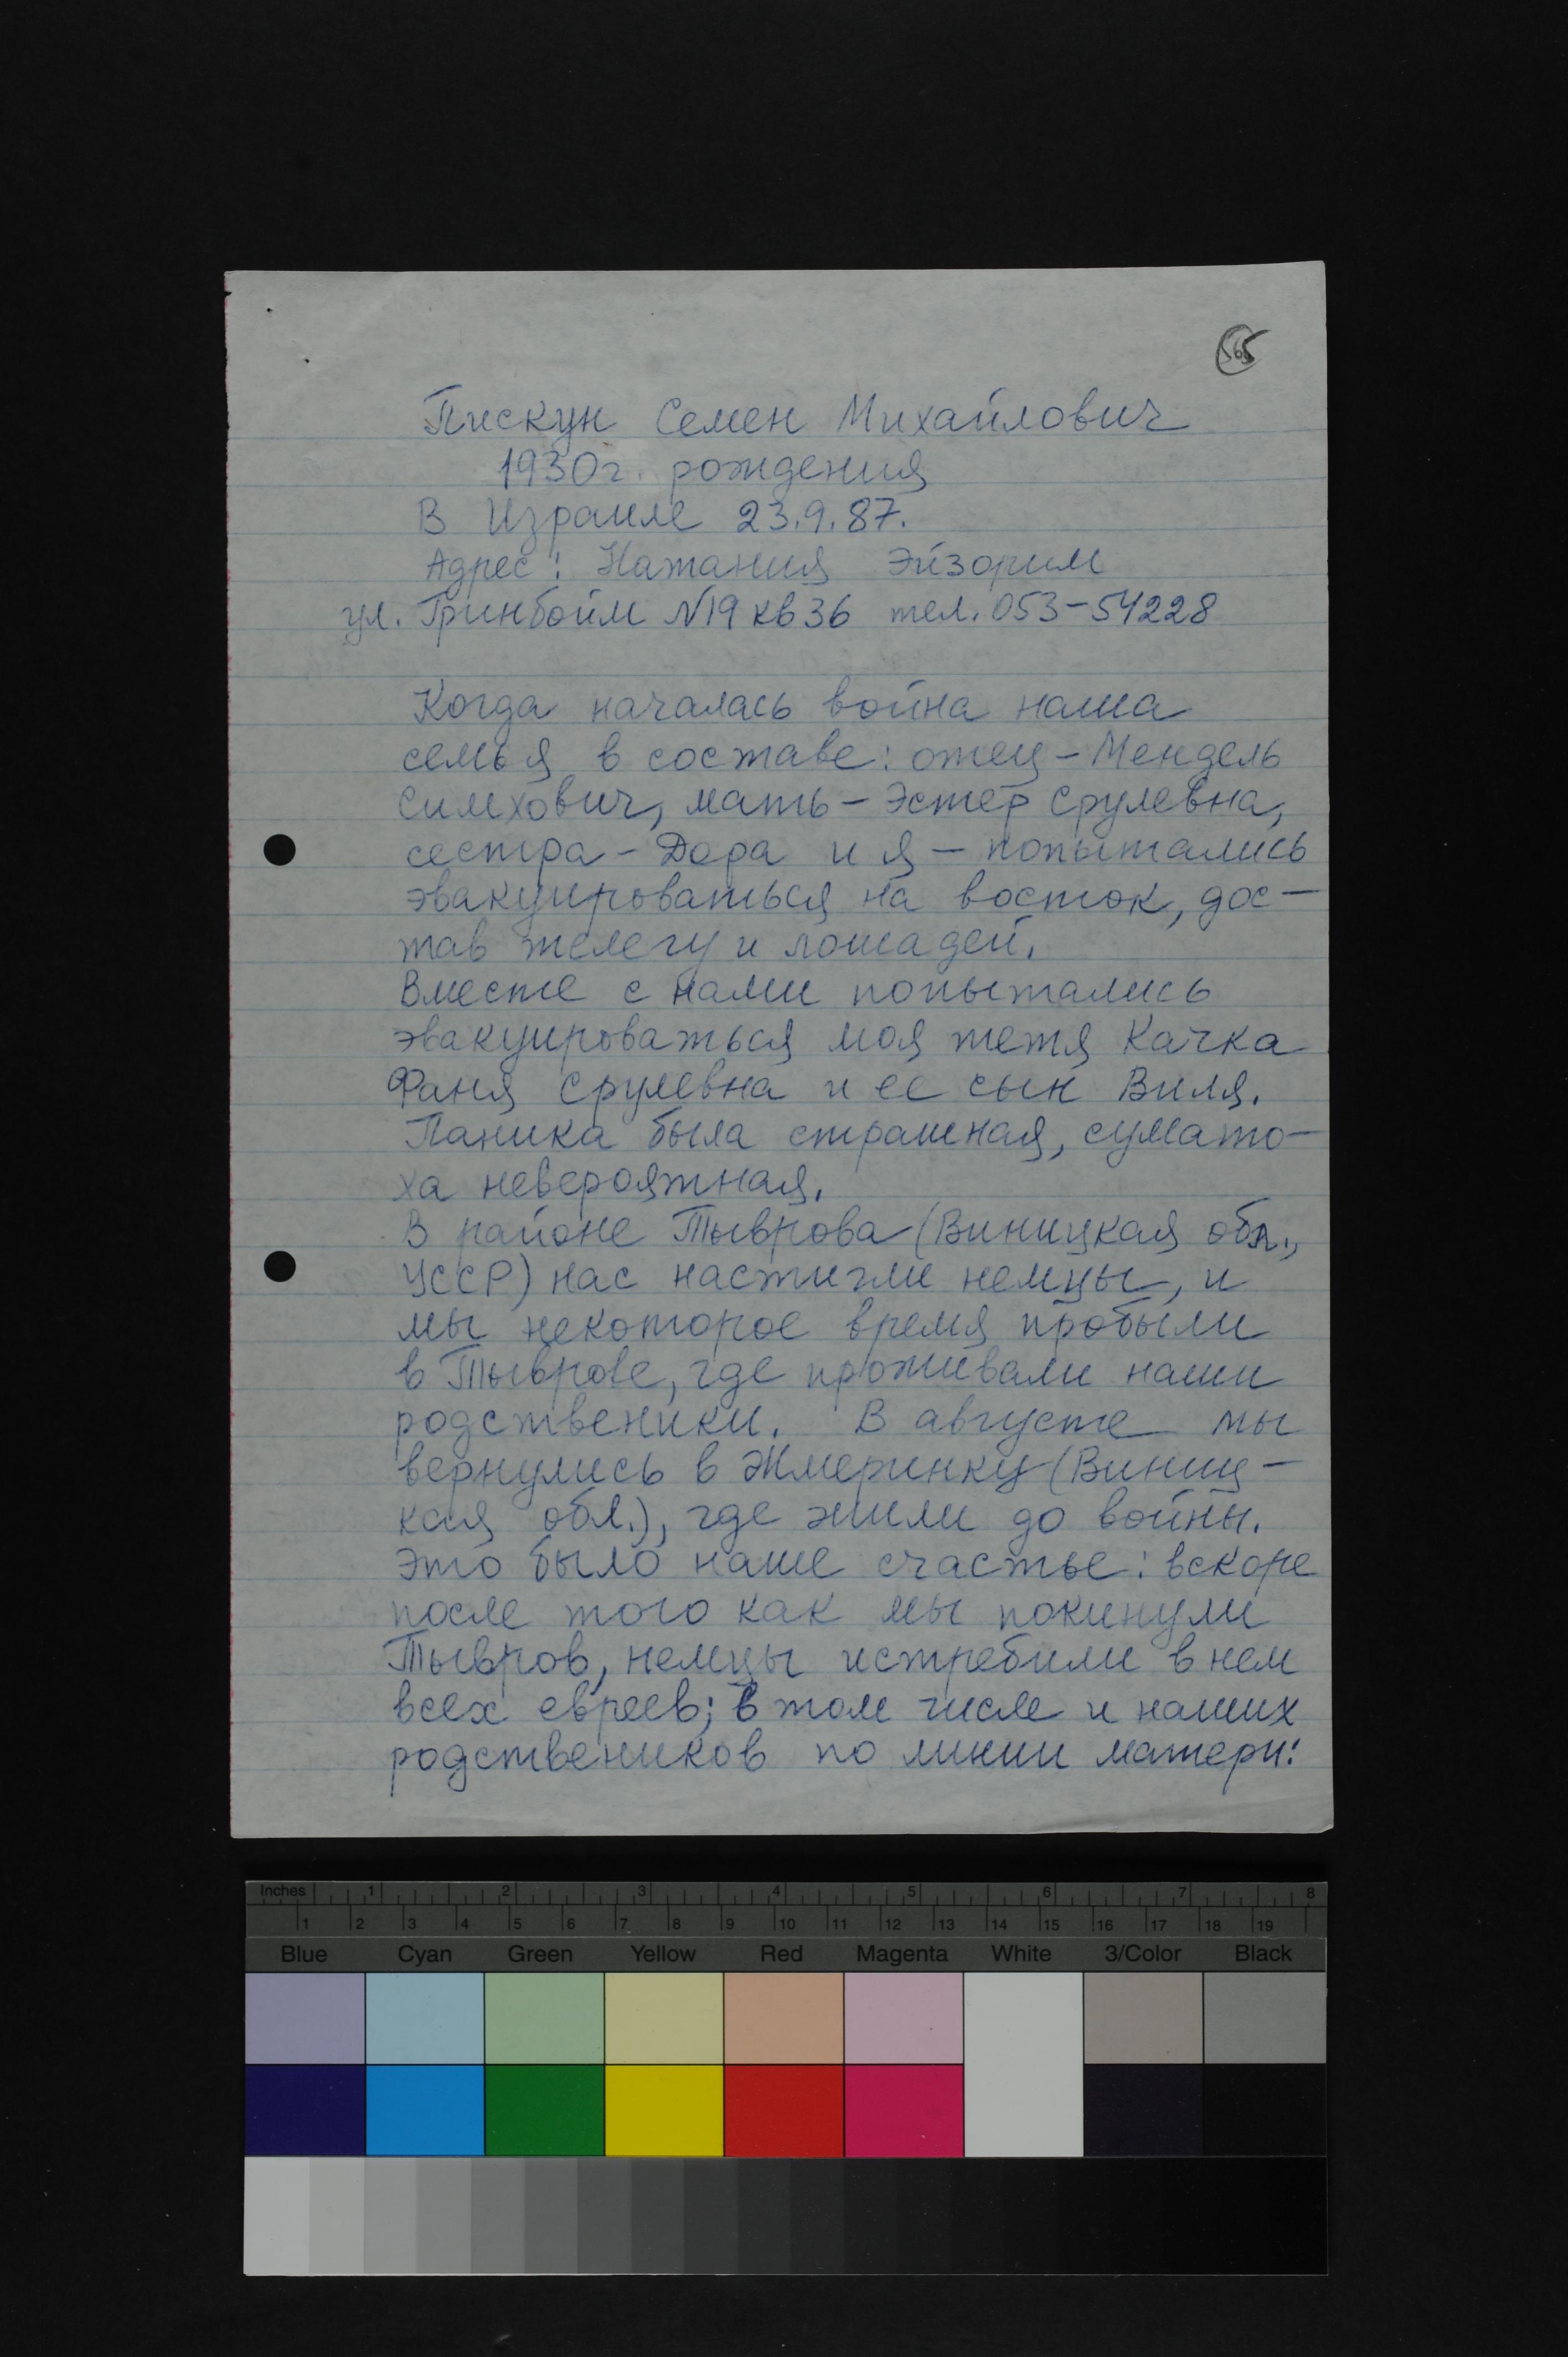 565
Пискун Семен Михайлович
1930г. рождения
В Израиле 23.9.87.
Адрес: Натания Эйзорим
ул. Гринбойм N19 кв 36 тел. 053-54228
Когда началась война наша
семья в составе: отец - Мендель
Симхович, мать - Эстер Срулевна,
сестра - Дора и я - попытались
эвакуироваться на восток, дос-
тав телегу и лошадей.
Вместе с нами попытались
эвакуироваться моя тетя Качка
Фаня Срулевна и ее сын Виля.
Паника была страшная, сумато-
ха невероятная.
В районе Тыврова (Виницкая обл.,
УССР) нас настигли немцы, и
мы некоторое время пробыли
в Тыврове, где проживали наши
родственики. В августе мы
вернулись в Жмеринку (Виниц-
кая обл.), где жили до войны.
Это было наше счастье: вскоре
после того как мы покинули
Тывров, немцы истребили в нем
всех евреев; в том числе и наших
родствеников по линии матери:
Inches 1 2 3 4 5 6 7 8
1 2 3 4 5 6 7 8 9 10 11 12 13 14 15 16 17 18 19
Blue Cyan Green Yellow Red Magenta White 3/Color Black